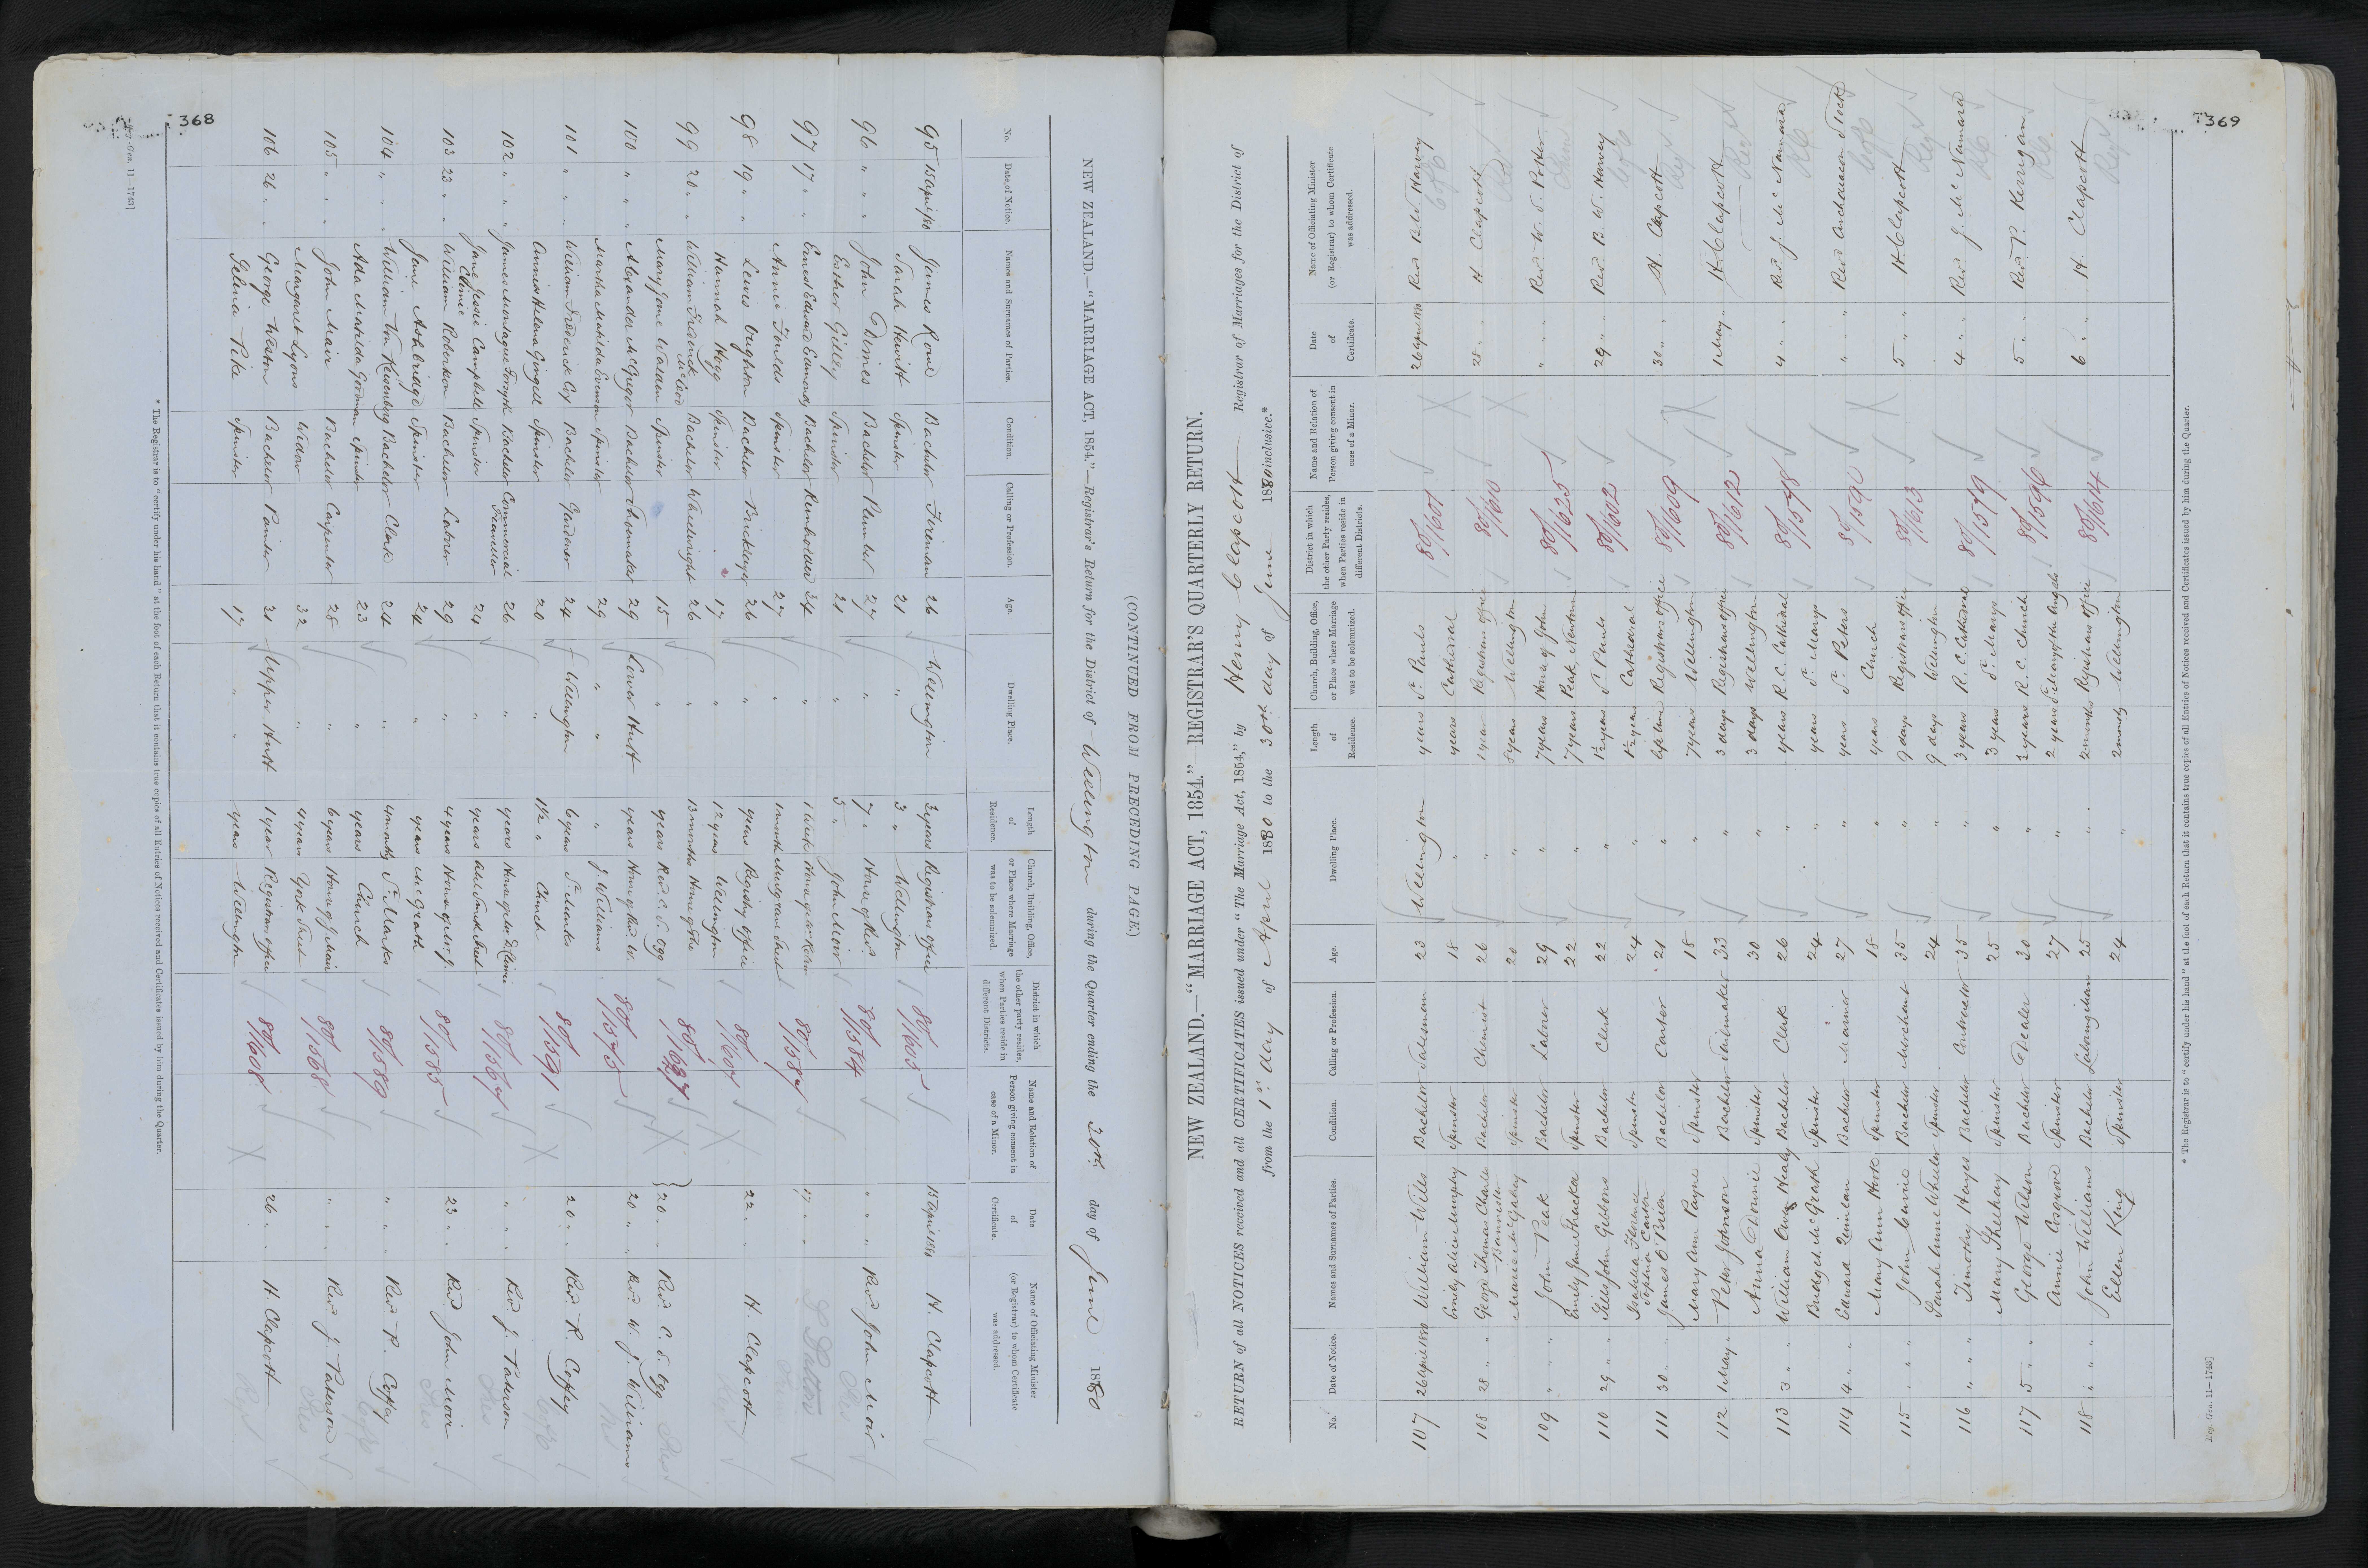 368
NEW ZEALAND.—"MARRIAGE ACT, 1854."—Registrar's Return for the District of Wellington during the Quarter ending the 30th day of June 1880
(CONTINUED FROM PRECEDING PAGE.)
No. Date of Notice. Names and Surnames of Parties. Condition. Calling or Profession. Age. Dwelling Place. Length of Residence. Church, Building, Office, or Place where Marriage was to be solemnized. District in which the other party resides, when Parties reside in different Districts. Name and Relation of Person giving consent in case of a Minor. Date of Certificate. Name of Officiating Minister (or Registrar) to whom Certificate was addressed.
95 15 April/80 James Rowe Bachelor Fireman 26 Wellington 2 years Registrars office 80/1605 15 April 1880 H. Clapcott
Sarah Hewitt Spinster 21 " 3 " Wellington
96 " " " John Dimes Bachelor Plumber 27 " 7 " House of Revd 80/1584 " " " Revd John Moir
Esther Gilley Spinster 21 " 5 " John Moir
97 17 " " Ernest Edward Edmonds Bachelor Runholder 34 " 1 week 80/1587 17 " "
Annie Foulds Spinster 27 " 1 month
98 19 " " Lewis Vughton Bachelor Bricklayer 26 " years Registry office 80/1607 22 " " H. Clapcott
Hannah Hogg Spinster 17 " 12 years Wellington
99 20 " " William Frederick McLeod Bachelor Wheelwright 26 " 13 months House of the 80/1637 20 " " Revd. C. S. Ogg
Mary Jane Walden Spinster 15 " years Revd. C. S. Ogg
100 " " Alexander McGregor Bachelor Shoemaker 29 Lower Hutt years House of Revd W. 80/1575 20 " " Revd. W. J. Williams
Martha Matilda Evenson Spinster 29 " " J. Williams
101 " " " William Frederick Ely Bachelor Gardener 24 Wellington 6 years St. Marks 80/1591 20 " " Revd. R. Coffey
Annie Helena Gingell Spinster 20 " 1½ " Church
102 " " " James Montague Forsyth Bachelor Commercial Traveller 26 " years 80/1567 " " " Revd. J. Paterson
Jane Jessie Campbell Clime Spinster 24 " years
103 23 " " William Robertson Bachelor Laborer 29 " 4 years House of Revd J. 80/1585 23 " " Revd. John Moir
Jane Ashbridge Spinster 24 " years McGrath
104 " " " William Von Keisenberg Bachelor Clerk 24 " 4 months St. Marks 80/1589 " " " Revd R. Coffey
Ada Matilda Gorman Spinster 23 " years Church
105 " " " John Mair Bachelor Carpenter 28 " 6 years House of J. Mair 80/1568 " " " Revd J. Paterson
Margaret Lyons Widow 32 " 4 years York Street
106 26 " " George Weston Bachelor Painter 21 Upper Hutt 1 year Registrars office 80/1608 26 " " H. Clapcott
Selina Pike Spinster 17 " " years Wellington
* The Registrar is to "certify under his hand" at the foot of each Return that it contains true copies of all Entries of Notices received and Certificates issued by him during the Quarter.
Reg.-Gen. 11—1743]
369
NEW ZEALAND.—"MARRIAGE ACT, 1854."—REGISTRAR'S QUARTERLY RETURN.
RETURN of all NOTICES received and all CERTIFICATES issued under "The Marriage Act, 1854," by Henry Clapcott Registrar of Marriages for the District of
from the 1st day of April 1880 to the 30th day of June 1880 inclusive.*
No. Date of Notice. Names and Surnames of Parties. Condition. Calling or Profession. Age. Dwelling Place. Length of Residence. Church, Building, Office, or Place where Marriage was to be solemnized. District in which the other Party resides, when Parties reside in different Districts. Name and Relation of Person giving consent in case of a Minor. Date of Certificate. Name of Officiating Minister (or Registrar) to whom Certificate was addressed.
107 26 April 1880 William Wills Bachelor Salesman 23 Wellington years St. Pauls 80/1601 26 April 1880 Revd B. W. Harvey
Emily Alice Murphy Spinster 18 " years Cathedral
108 28 " " George Thomas Charles Bannister Bachelor Chemist 26 " 1 year Registrars office 80/1610 28 " " H. Clapcott
Spinster 20 " 8 years Wellington
109 " " " John Peak Bachelor Laborer 29 " 7 years House of John 80/1625 " " " Revd. W. S. Potter
Emily Jane Shacka Spinster 22 " 7 years Peak, Newtown
110 29 " " Giles John Gibbons Bachelor Clerk 22 " 1½ years St. Pauls 80/1602 29 " " Revd. B. W. Harvey
Isabella Florence Sophia Carter Spinster 24 " 1½ years Cathedral
111 30 " " James O'Brien Bachelor Carter 21 " Registrars office 80/1609 30 " " H. Clapcott
Mary Ann Payne Spinster 18 " 7 years Wellington
112 1 May " Peter Johnson Bachelor Sailmaker 33 " 3 days Registrars office 80/1612 1 May " H. Clapcott
Anna Dennie Spinster 30 " 3 days Wellington
113 3 " " William Healy Bachelor Clerk 26 " years R. C. Cathedral 80/1578 4 " " Revd J. McNamara
Bridget McGrath Spinster 24 " years St. Marys
114 4 " " Edward Quinlan Bachelor Mariner 27 " years St. Peters 80/1592 " " " Revd Archdeacon Stock
Mary Ann Hook Spinster 18 " years Church
115 " " " John Currie Bachelor Merchant 35 " 9 days Registrars office 80/1613 5 " " H. Clapcott
Sarah Anne Wheeler Spinster 24 " 9 days Wellington
116 " " " Timothy Hayes Bachelor Contractor 35 " 3 years R. C. Cathedral 80/1579 4 " " Revd. J. McNamara
Mary Sheehay Spinster 25 " 3 years St. Marys
117 5 " " George Wilson Bachelor Dealer 30 " 2 years R. C. Church 80/1596 5 " " Revd P. Kerrigan
Annie Cosgrove Spinster 27 " 2 years St Mary of the Angels
118 " " " John Williams Bachelor Laboringman 25 " 2 months Registrars office 80/1614 6 " " H. Clapcott
Ellen King Spinster 24 " 2 months Wellington
* The Registrar is to "certify under his hand" at the foot of each Return that it contains true copies of all Entries of Notices received and Certificates issued by him during the Quarter.
Reg.-Gen. 11—1743]